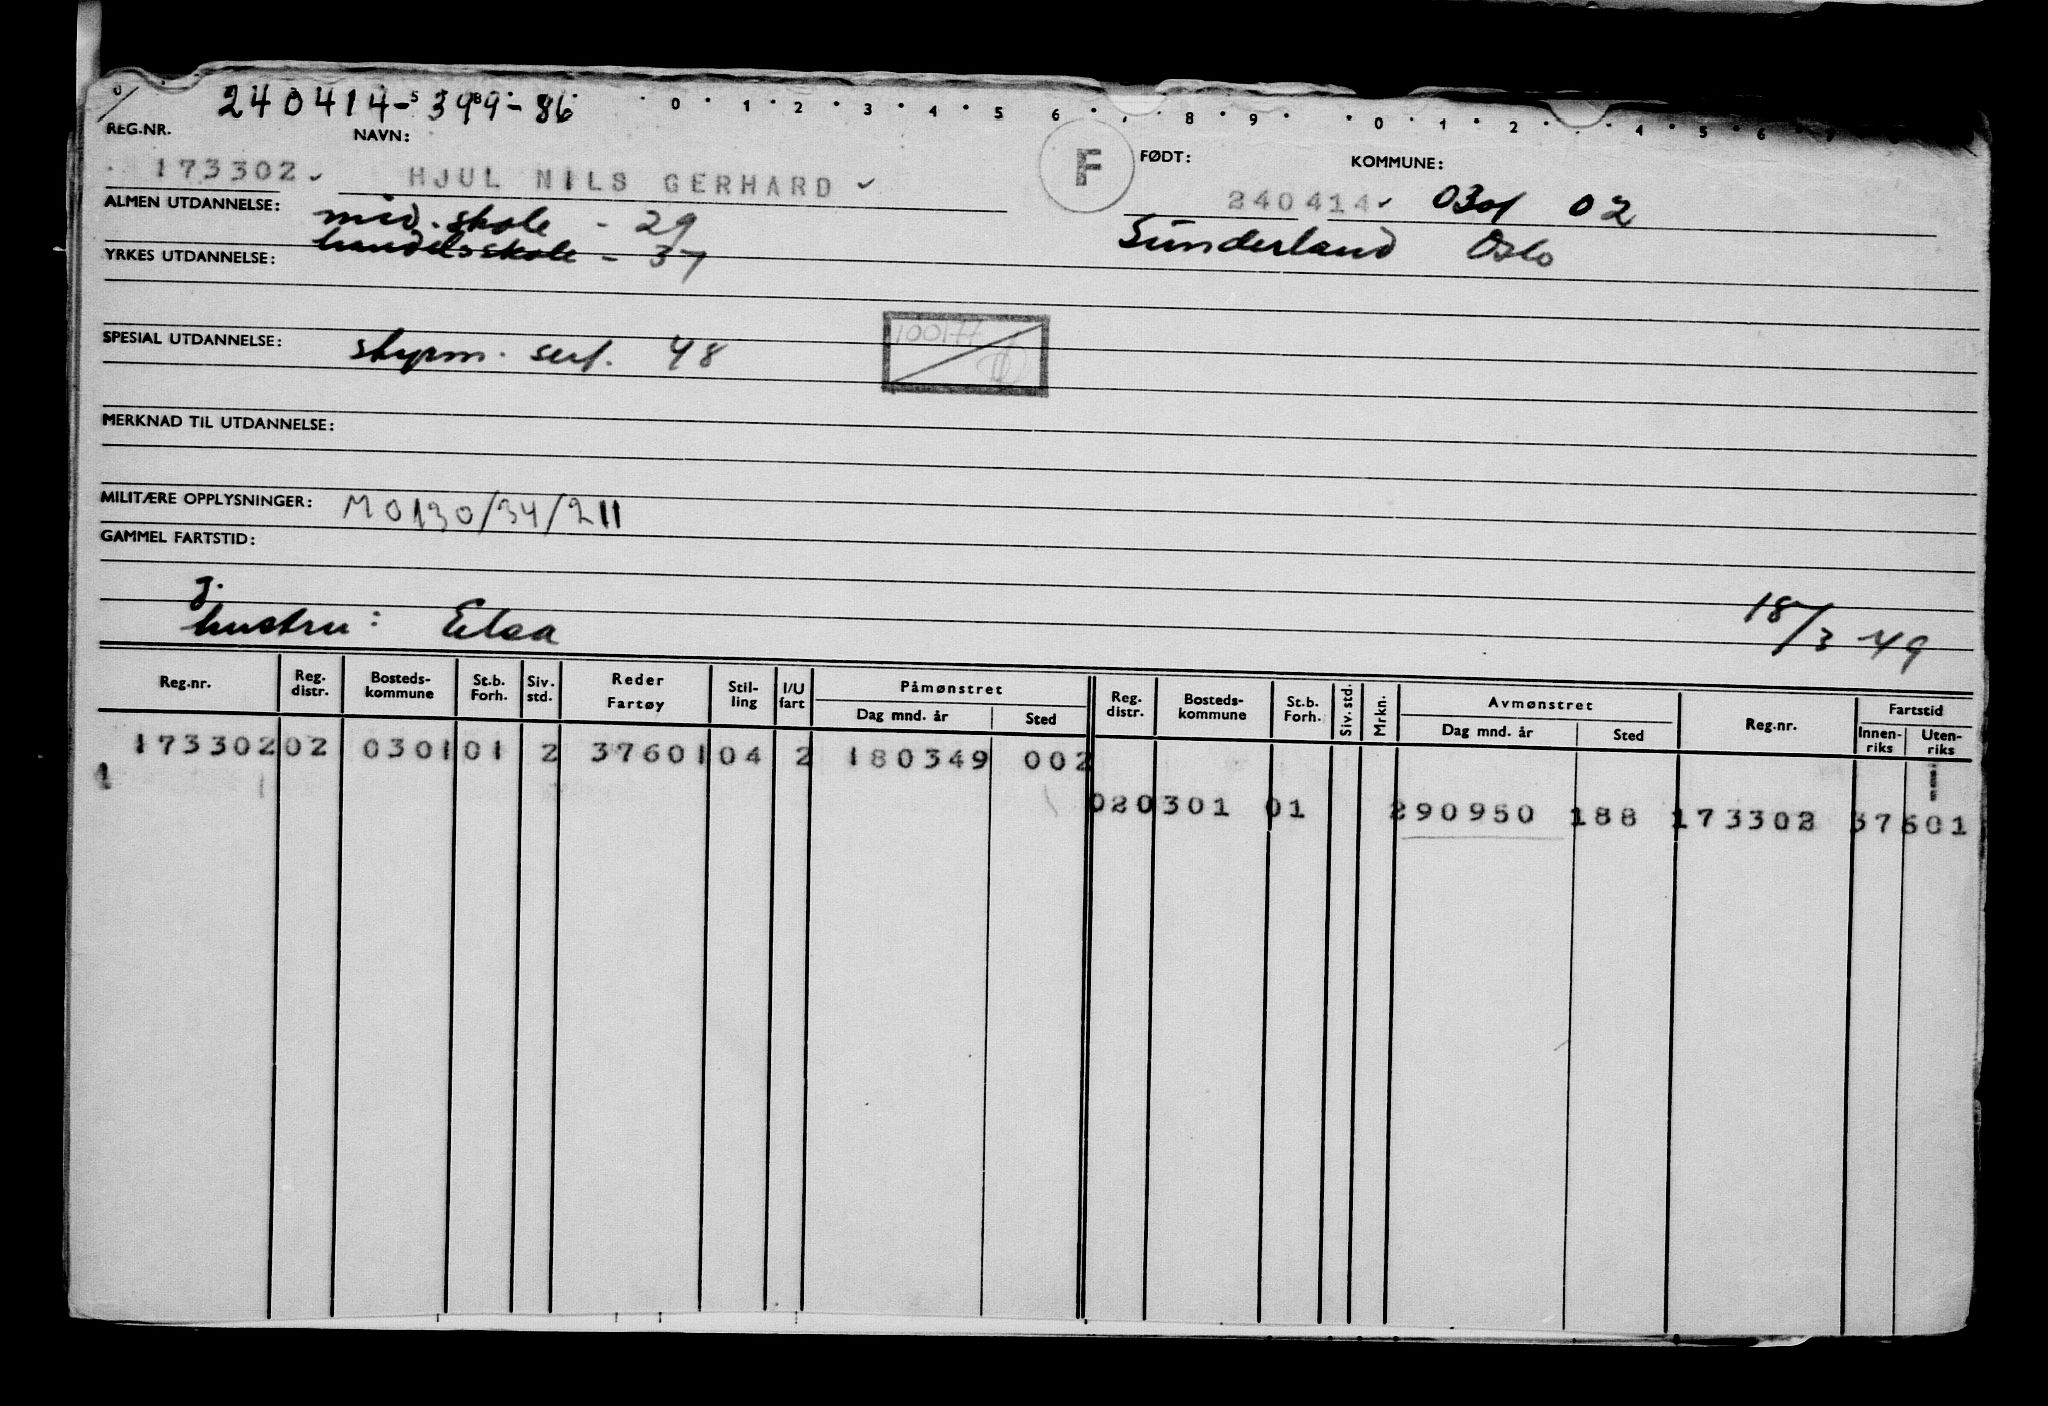 240414-⁵399-86
0 · 1 · 2 · 3 · 4 · 5 · 6 · · 8 · 9 · · 0 · 1 · 2 · · 4 · 5 · 6
REG.NR. NAVN: F FØDT: KOMMUNE:
173302 HJUL NILS GERHARD 240414 0301 02
ALMEN UTDANNELSE: mid. skole - 29 Sunderland Oslo
YRKES UTDANNELSE: handelsskole - 37
SPESIAL UTDANNELSE: styrm. sert. 48 100177
MERKNAD TIL UTDANNELSE:
MILITÆRE OPPLYSNINGER: MO130/34/211
GAMMEL FARTSTID:
g.
hustru: Elsa 18/3 49
Reg.nr. Reg. distr. Bosteds- kommune St.b. Forh. Siv. std. Reder Fartøy Stil- ling I/U fart Påmønstret Dag mnd. år Sted Reg. distr. Bosteds- kommune St.b. Forh. Siv. std. Mrkn. Avmønstret Dag mnd. år Sted Reg.nr. Fartstid Innen- riks Uten- riks
173302 02 0301 01 2 37601 04 2 180349 002
1 02 0301 01 290950 188 173302 37601